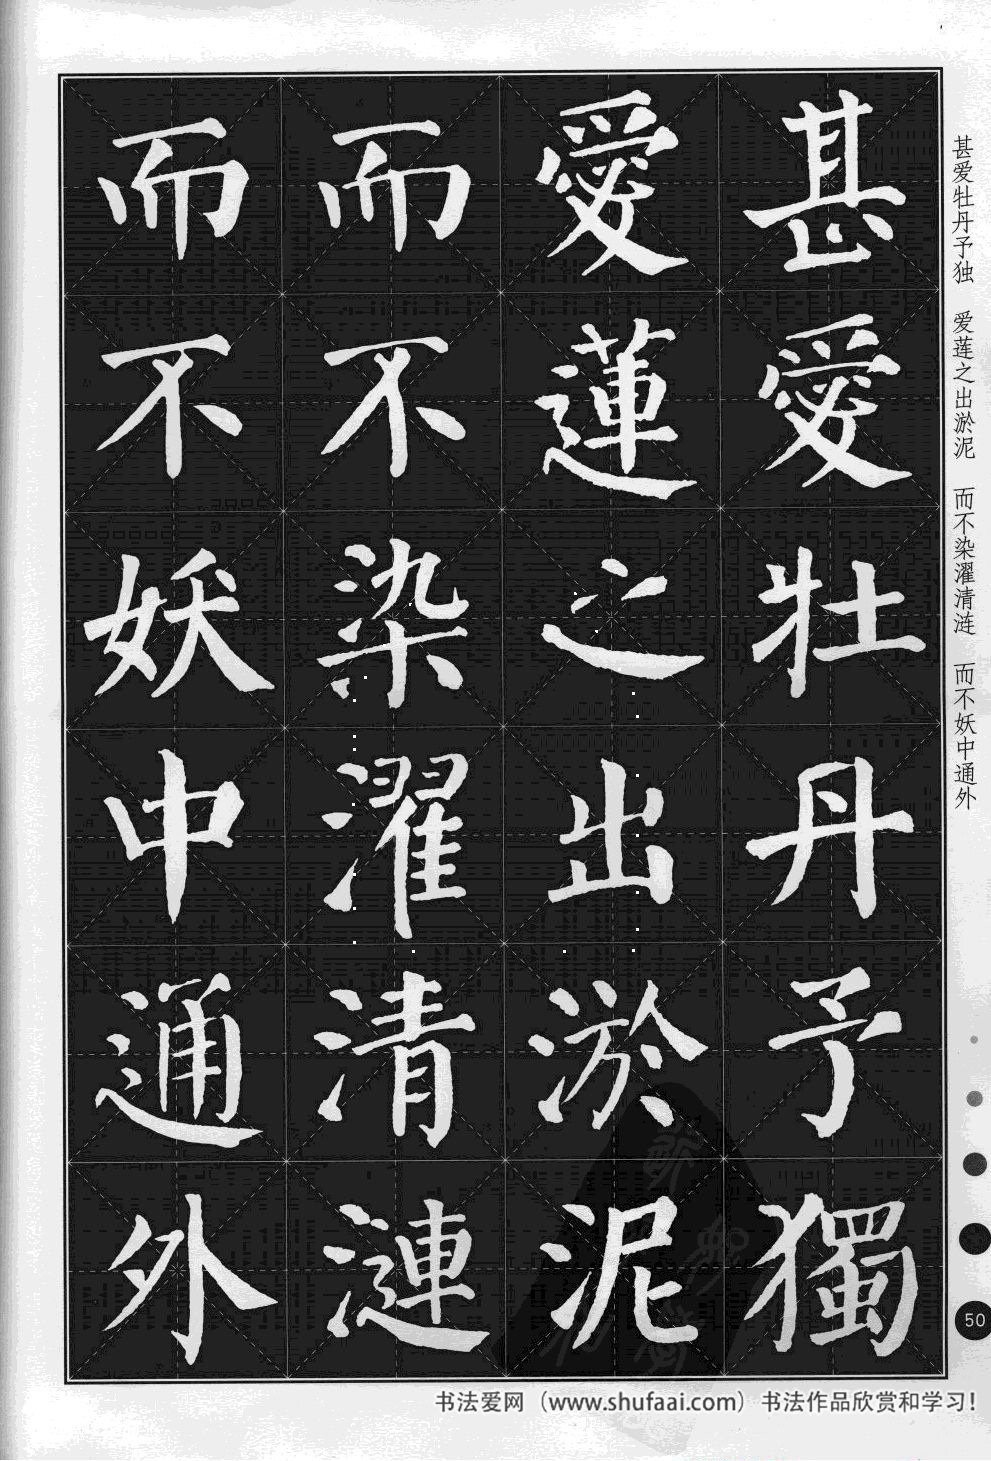 甚愛牡丹予獨
愛蓮之出淤泥
而不染濯清漣
而不妖中通外
甚爱牡丹予独 爱莲之出淤泥 而不染濯清涟 而不妖中通外
50
书法爱网（www.shufaai.com）书法作品欣赏和学习！